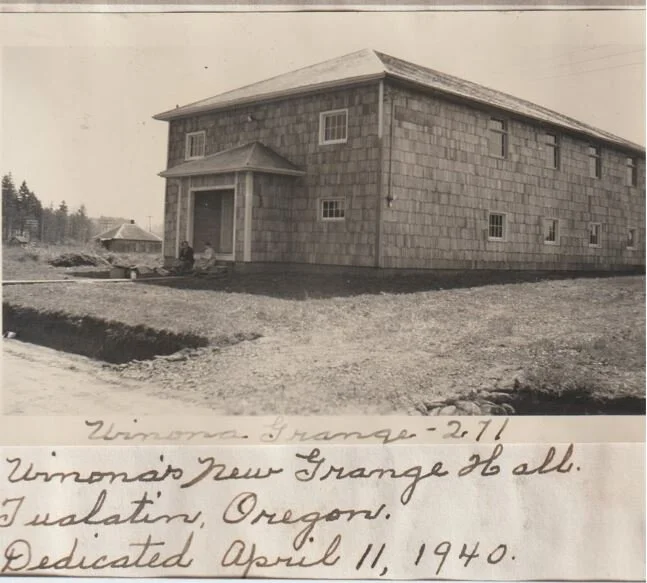 Winona Grange - 271
Winona's New Grange Hall.
Tualatin, Oregon.
Dedicated April 11, 1940.